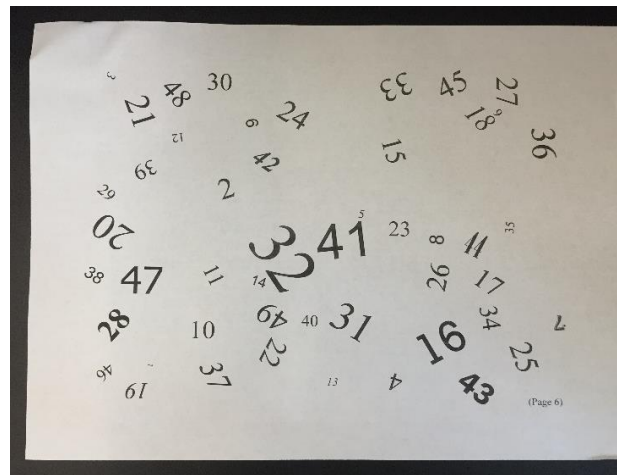 3
48
30
33
45
27
21
24
18
9
6
12
36
42
15
39
29
2
20
5
32
41
23
8
44
35
38
47
11
14
26
17
28
10
49
40
31
34
7
16
22
25
46
19
37
13
4
43
(Page 6)